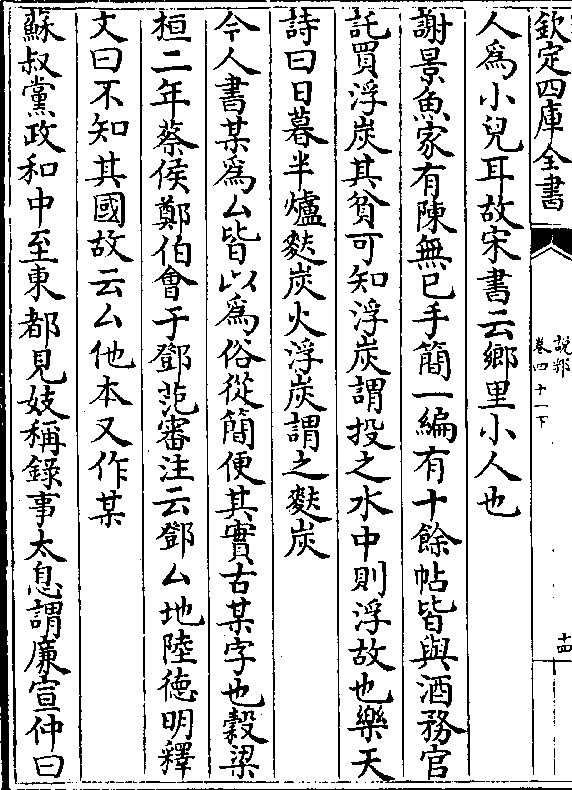 欽定四庫全書
說郛
卷四十一下
十四
人為小兒耳故宋書云鄉里小人也
謝景魚家有陳無已手簡一編有十餘帖皆與酒務官
託買浮炭其貧可知浮炭謂投之水中則浮故也樂天
詩曰日暮半爐麩炭火浮炭謂之麩炭
今人書某為厶皆以為俗從簡便其實古某字也穀梁
桓二年蔡侯鄭伯會于鄧范審注云鄧厶地陸德明釋
文曰不知其國故云厶他本又作某
蘇叔黨政和中至東都見妓稱錄事太息謂廉宣仲曰